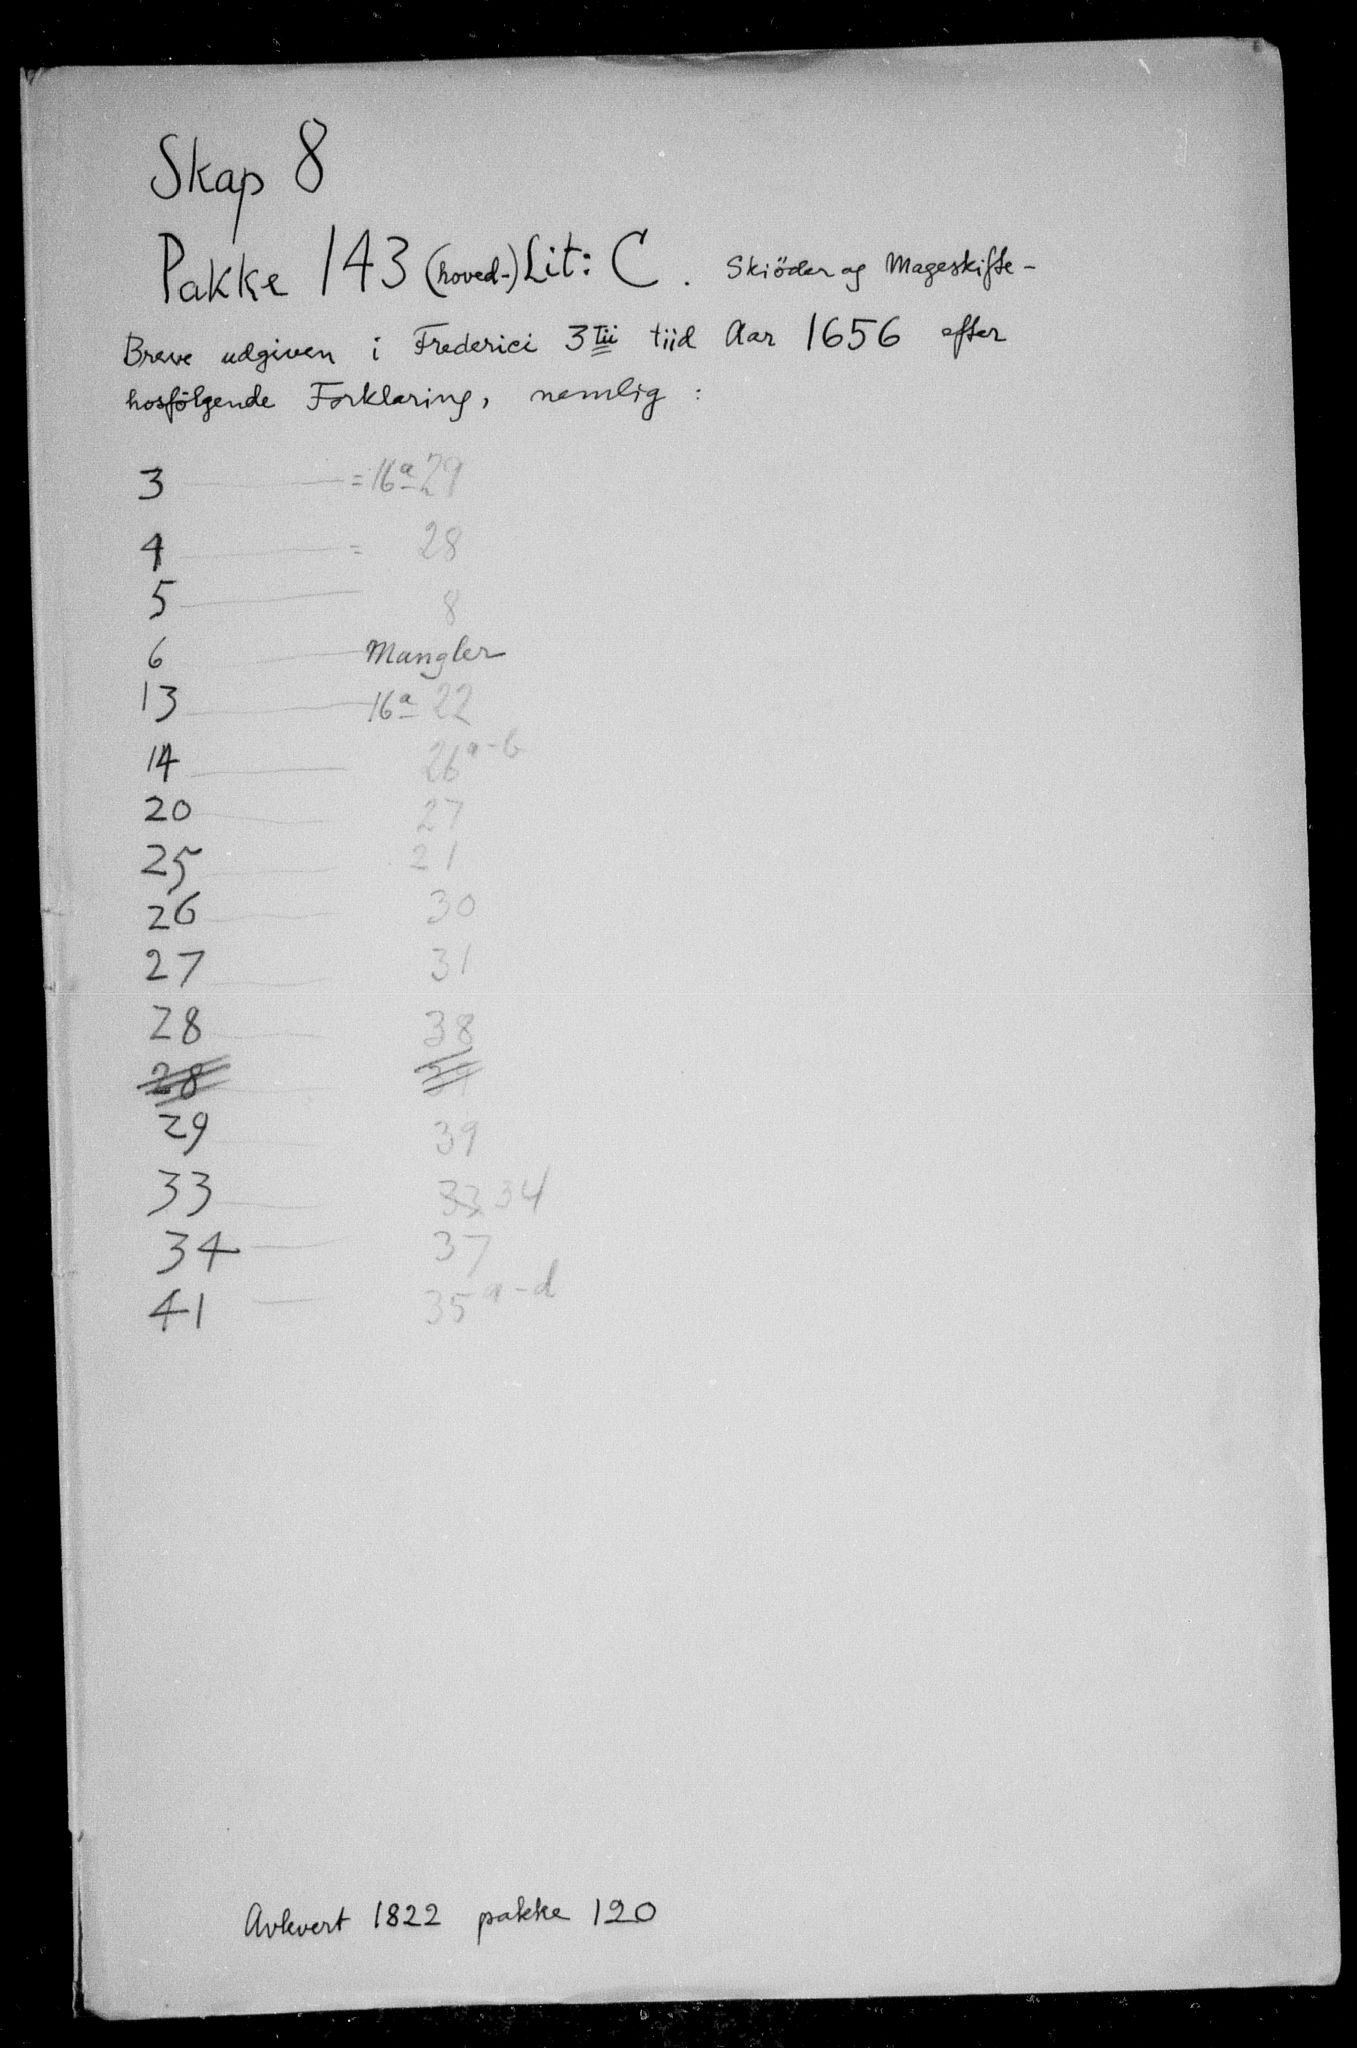 Skap 8
Pakke 143 (hoved-) Lit: C. Skiöder og Mageskifte-
Breve udgiven i Frederici 3tii tiid Aar 1656 efter
hosfölgende Forklaring, nemlig:
3 = 16a 29
4 = 28
5 8
6 Mangler
13 16a 22
14 26a-b
20 27
25 21
26 30
27 31
28 38
28
29 39
33 33 34
34 37
41 35a-d
Avlevert 1822 pakke 120